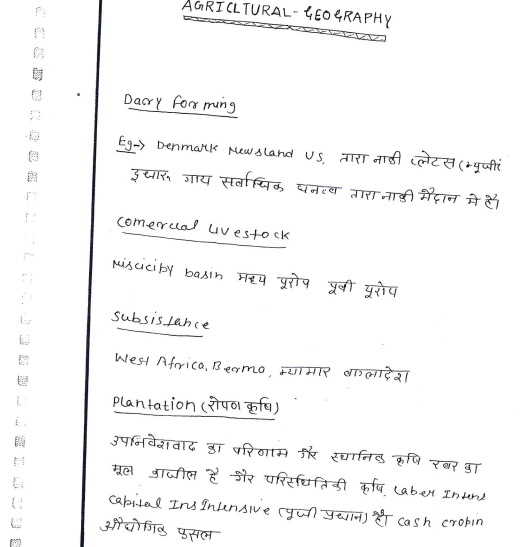 AGRICLTURAL-GEOGRAPHY
Dacry Forming
Eg→ Denmark Newsland US, तारा नाकी प्लेटस (न्यूजी
गाय सर्वाधिक घनत्व तारा नाकी मैदान मे है।
Comercial Livestock
Miscicipy basin मध्य यूरोप पूर्वी यूरोप
Subsistance
West Africa, Bermo, म्यामार बाग्लादेश
Plantation (रोपण कृषि)
उपनिवेशवाद का परिणाम गैर स्थानिक कृषि रबर का
मूल ब्राजील है गैर परिस्थितिकी कृषि, Laber Intens
Capital Ins Intensive (पूजी प्रधान) है। cash cropin
औद्योगिक फसल